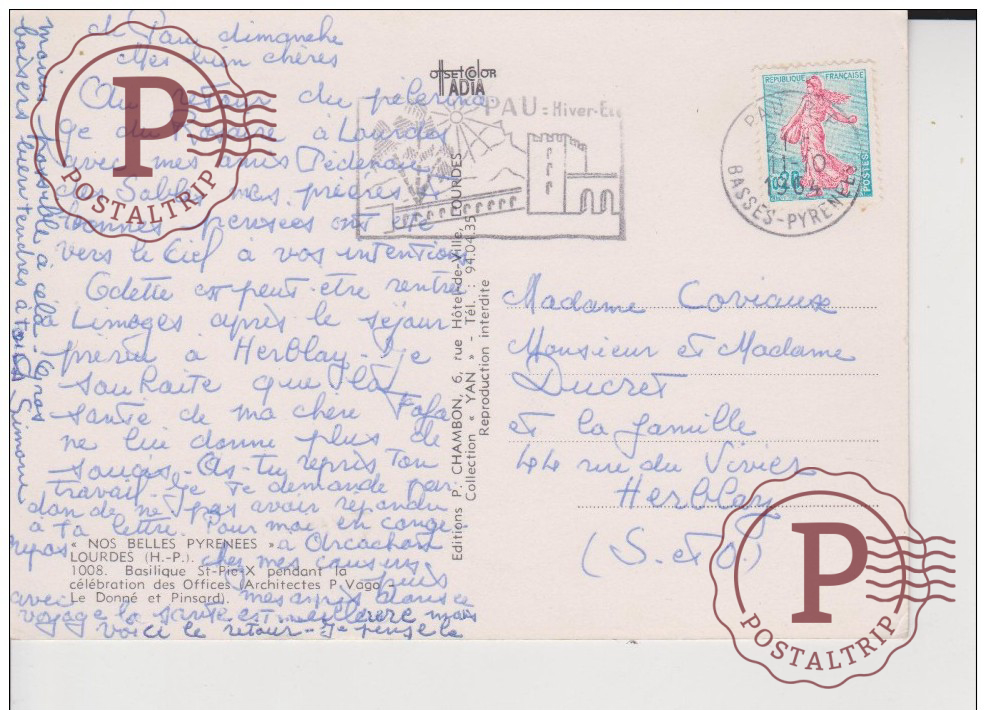 de Pau dimanche
Mes bien chères
Au retour du pélerina
ge du Rosaire à Lourdes
avec mes amis Pédenau
des Sables mes prières et
bonnes pensées ont été
vers le Ciel à vos intentions
Odette est peut être rentrée
à Limoges après le séjour
prévu à Herblay. Je
souhaite que l'état
santé de ma chère Fafa
ne lui donne plus de
soucis. As-tu repris ton
travail. Je te demande par
don de ne pas avoir répondu
à ta lettre. Pour moi en congé
repos à Arcachon
chez mes cousins
puis
avec mes amis
voyage la santé est meilleure mais
voici le retour. Je pense le
moins possible à celà. Gros
baisers bien tendres à tous Simone
OFFSETCOLOR
ADIA
PAU = Hiver-Eté
PAU
11-10
1964
BASSES-PYRENEES
REPUBLIQUE FRANÇAISE
POSTES
Editions P. CHAMBON, 6, rue Hôtel-de-Ville, LOURDES
Collection « YAN » - Tél. : 94.04.35
Reproduction interdite
Madame Coviaux
Monsieur et Madame
Ducret
et la famille
44 rue du Vivier
Herblay
(S. et O.)
« NOS BELLES PYRENEES »
LOURDES (H.-P.).
1008. Basilique St-Pie X pendant la
célébration des Offices (Architectes P. Vago,
Le Donné et Pinsard).
P
POSTALTRIP
P
POSTALTRIP